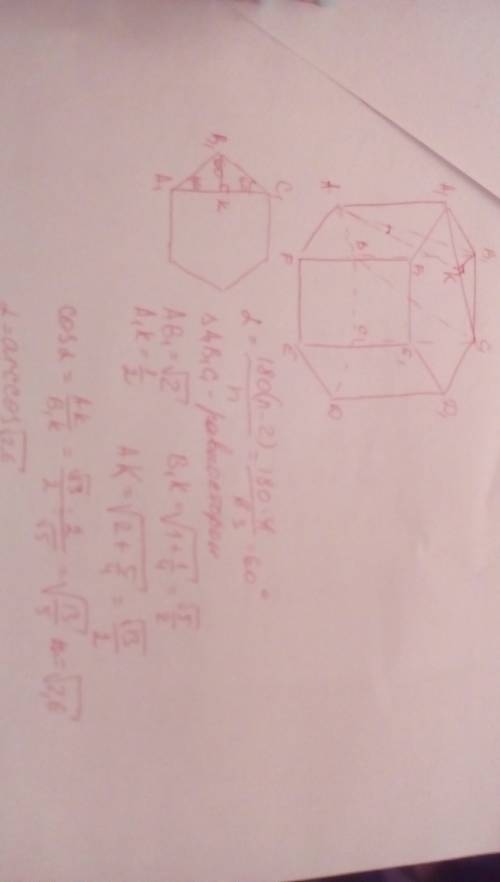 A₁ B₁ C₁ D₁ E₁
A B C₁ D E F K
B₁ A₁ C₁ K
α = 180(n-2)/n = 180·4/6 3 = 60°
ΔABC - равносторон
AB₁ = √2 B₁K = √1+1/4 = √5/2
A₁K = 1/2 AK = √2 + 5/4 = √13/2
cosα = AK/B₁K = √13/2 · 2/√5 = √13/5 = √2,6
α = arccos √2,6